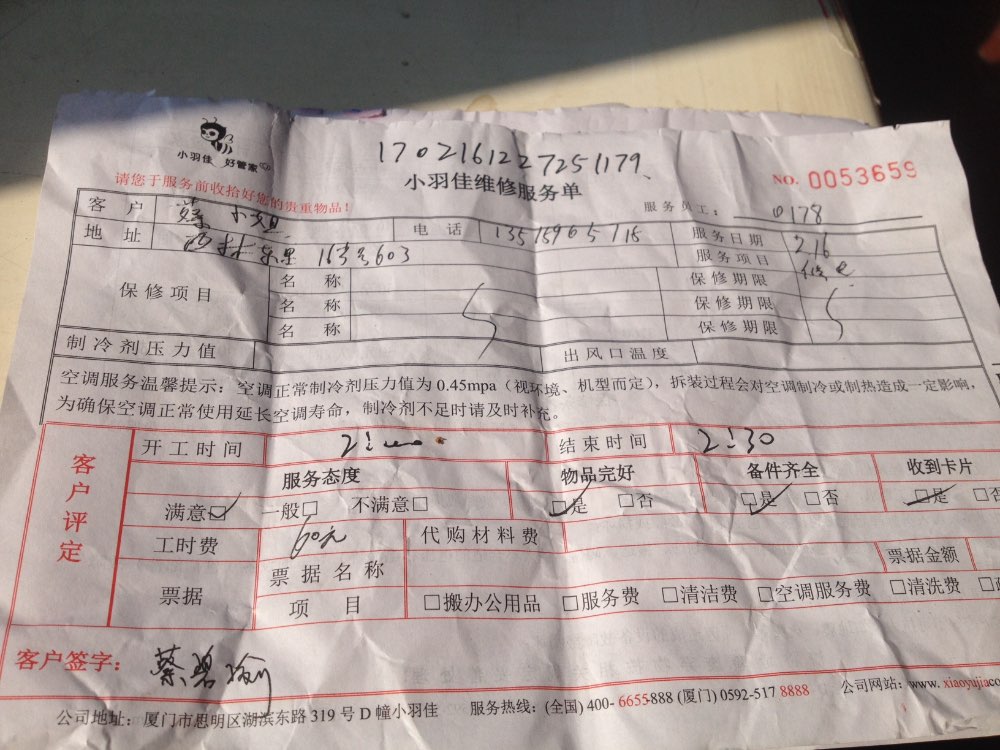 小羽佳 好管家
1702161227251179
小羽佳维修服务单
NO. 0053659
请您于服务前收拾好您的贵重物品!
服务员工: 0178
客户 蔡小姐 电话 服务日期 216
地址 16号603 服务项目
保修项目 名称 保修期限
名称 保修期限
名称 保修期限
制冷剂压力值 出风口温度
空调服务温馨提示: 空调正常制冷剂压力值为0.45mpa(视环境、机型而定),拆装过程会对空调制冷或制热造成一定影响,
为确保空调正常使用延长空调寿命,制冷剂不足时请及时补充。
客户评定
开工时间 结束时间 2:30
服务态度 物品完好 备件齐全 收到卡片
满意☑ 一般□ 不满意□ ☑是 □否 ☑是 □否 ☑是 □否
工时费 60元 代购材料费
票据 票据名称 票据金额
项目 □搬办公用品 □服务费 □清洁费 □空调服务费 □清洗费
客户签字: 蔡碧瑜
公司地址: 厦门市思明区湖滨东路319号D幢小羽佳 服务热线: (全国) 400-6655-888 (厦门) 0592-517 8888 公司网站: www.xiaoyujia.co